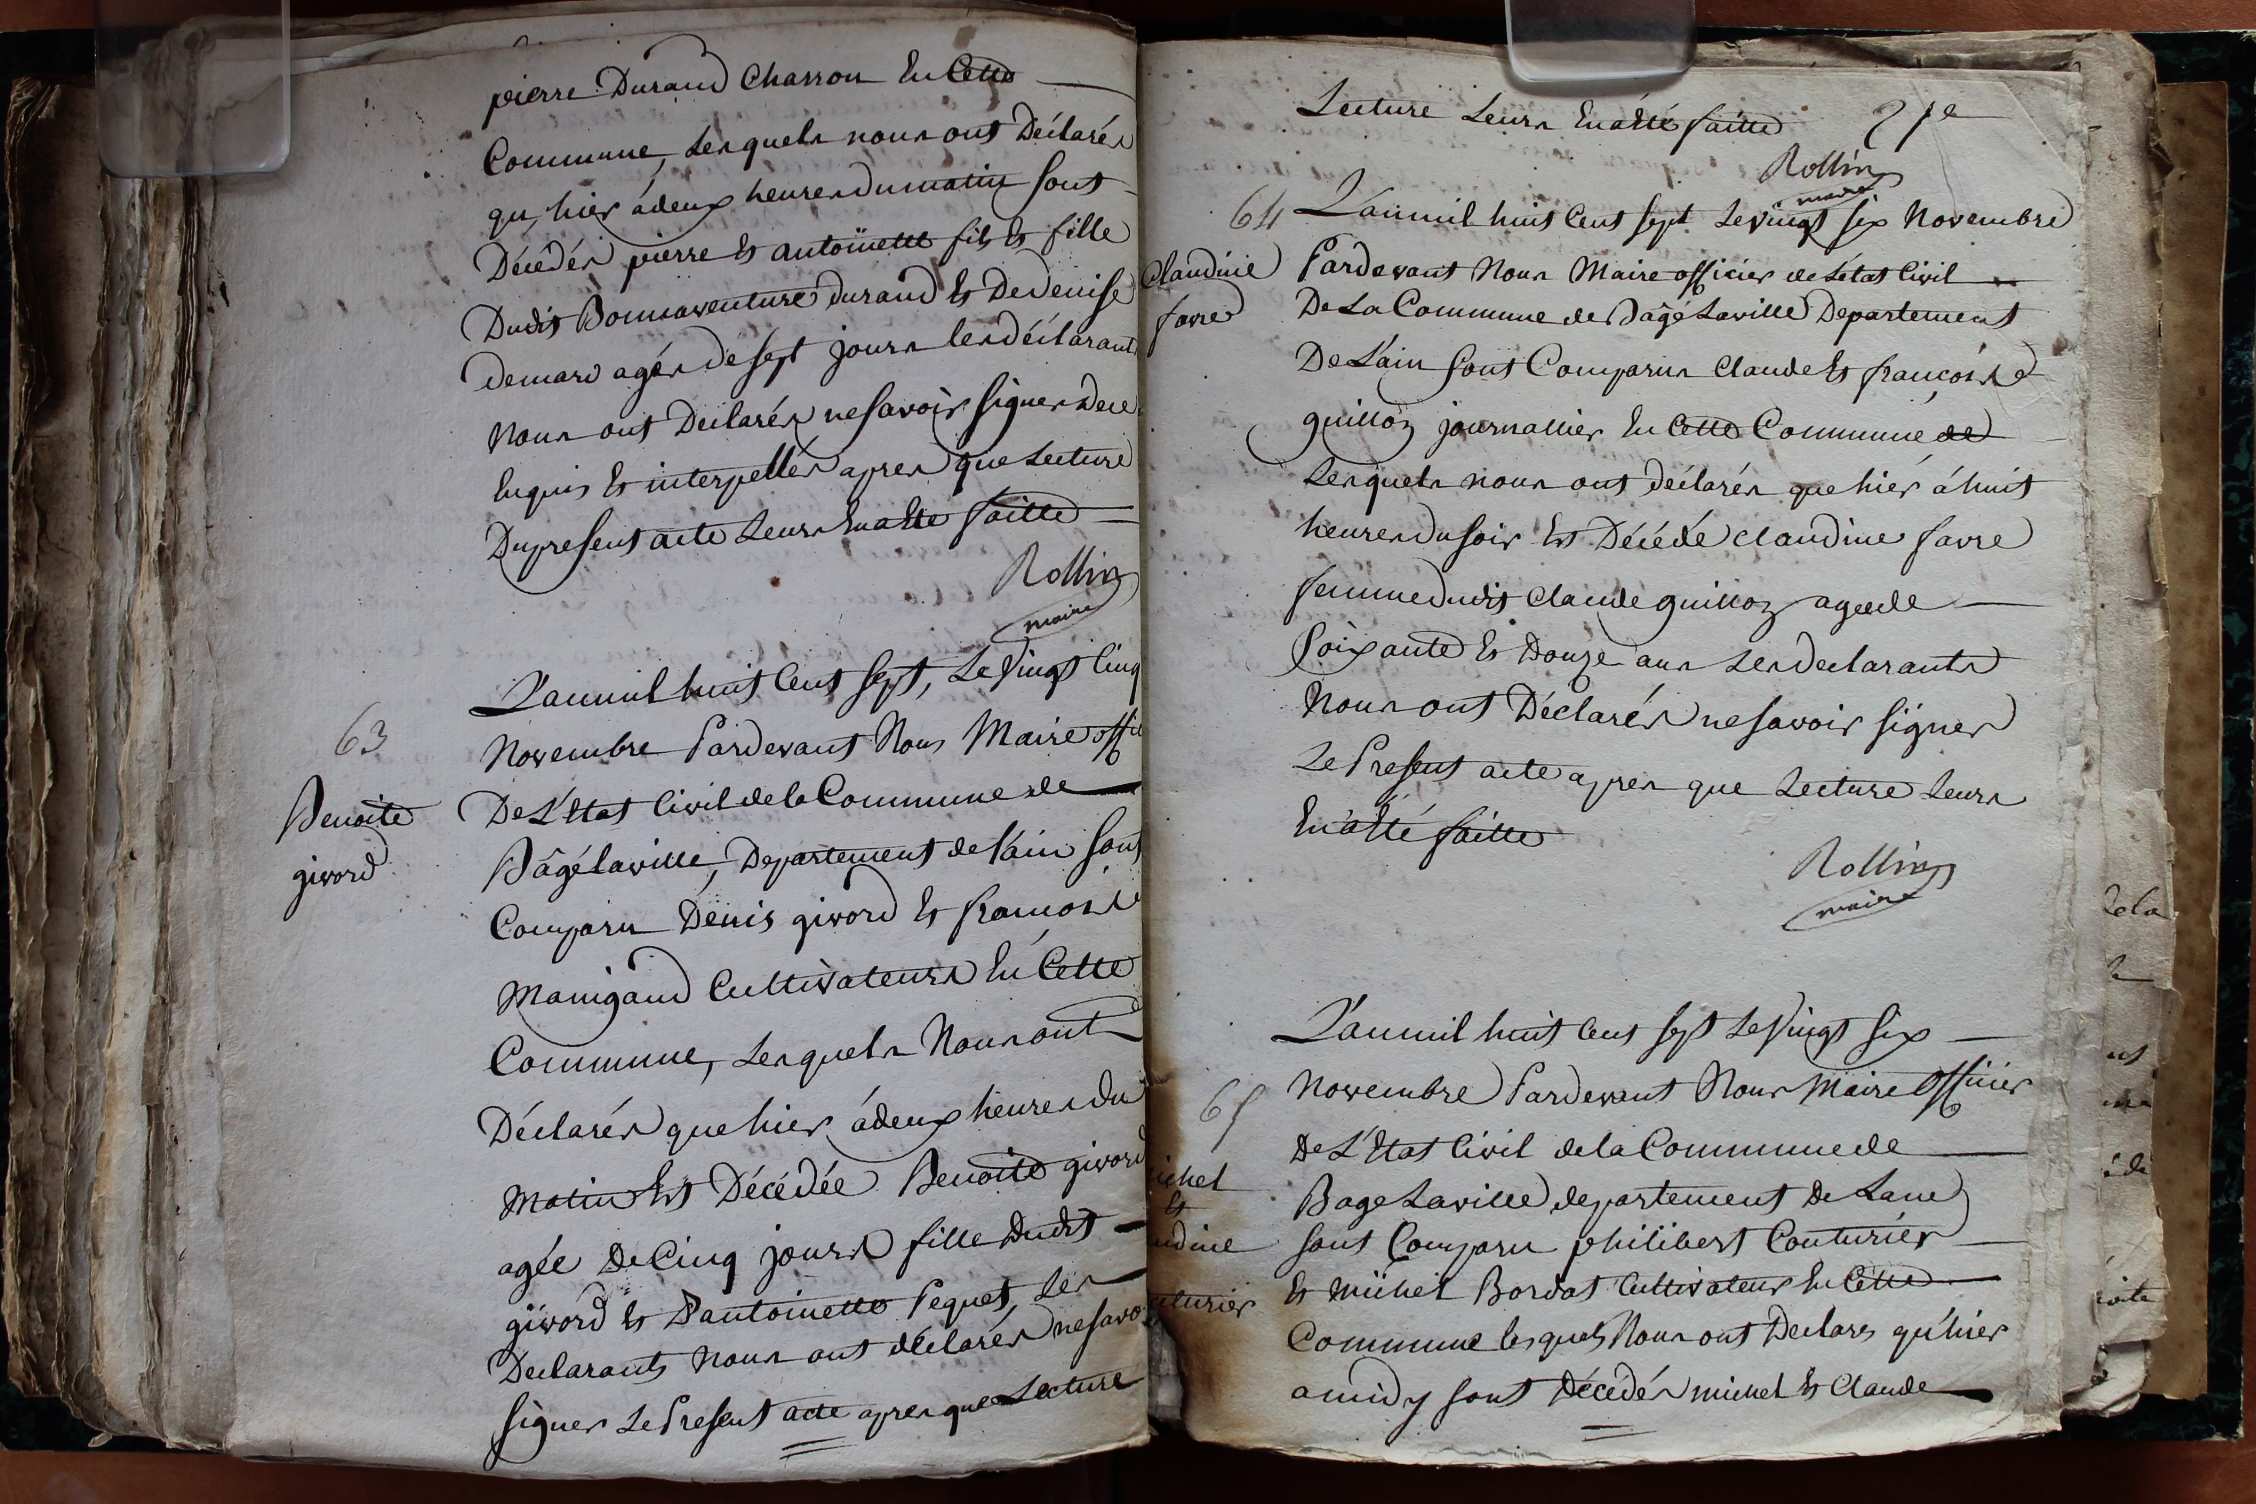 pierre Durand Charron En Cette
Commune, Lesquels nous ont Déclarés
qu'hier à deux heures du matin sont
Décédés pierre Et antoinette fils Et fille
Dudit Bonnaventure durand Et De denise
demard agés de sept jours les déclarants
Nous ont Declarés ne savoir signer dece
Enquis Et interpellés apres que Lecture
Du present acte Leurs En a Ette faitte
Rollin
maire
63
Benoite
givord
L'an mil huit Cent sept, Le Vingt Cinq
Novembre Pardevant Nous Maire offic
De L'Etat Civil de la Commune de
Bâgé laville, Departement de l'ain sont
Comparu Dénis givord Et francois
Manigand Cultivateurs En Cette
Commune, Lesquels Nous ont
Déclarés que hier à deux heures du
Matin Est Décédée Benoite givord
agée De Cinq jours fille Dudit
givord Et D'antoinette Pequet, Les
Declarants Nous ont déclarés ne savoir
signer Le Present acte apres que Lecture
Lecture Leurs En a Eté faitte
21e
Rollin
maire
64
Claudine
favre
L'an mil huit Cent sept Le Vingt six Novembre
Pardevant Nous Maire officier de L'état Civil
De La Commune de Bâgé Laville Departement
De L'ain sont Comparus Claude Et francois
guilloz journallier En Cette Commune de
Lesquels nous ont déclarés que hiér à huit
heures du soir Est Décédé Claudine favre
femme dudit Claude guilloz agee de
soixante Et Douze ans Les declarants
Nous ont Déclarés ne savoir signer
Le Present acte apres que Lecture Leurs
En a Eté faitte
Rollin
maire
65
ichel
Et
udine
uturier
L'an mil huit Cent sept Le Vingt six
Novembre Pardevant Nous Maire officier
De L'Etat Civil de la Commune de
Bage Laville departement De Lane
sont Comparu philibert Couturier
Et Michel Bordat Cultivateur En Cette
Commune lesquels Nous ont Declares qu'hier
a midy sont Décédés michel Et Claude